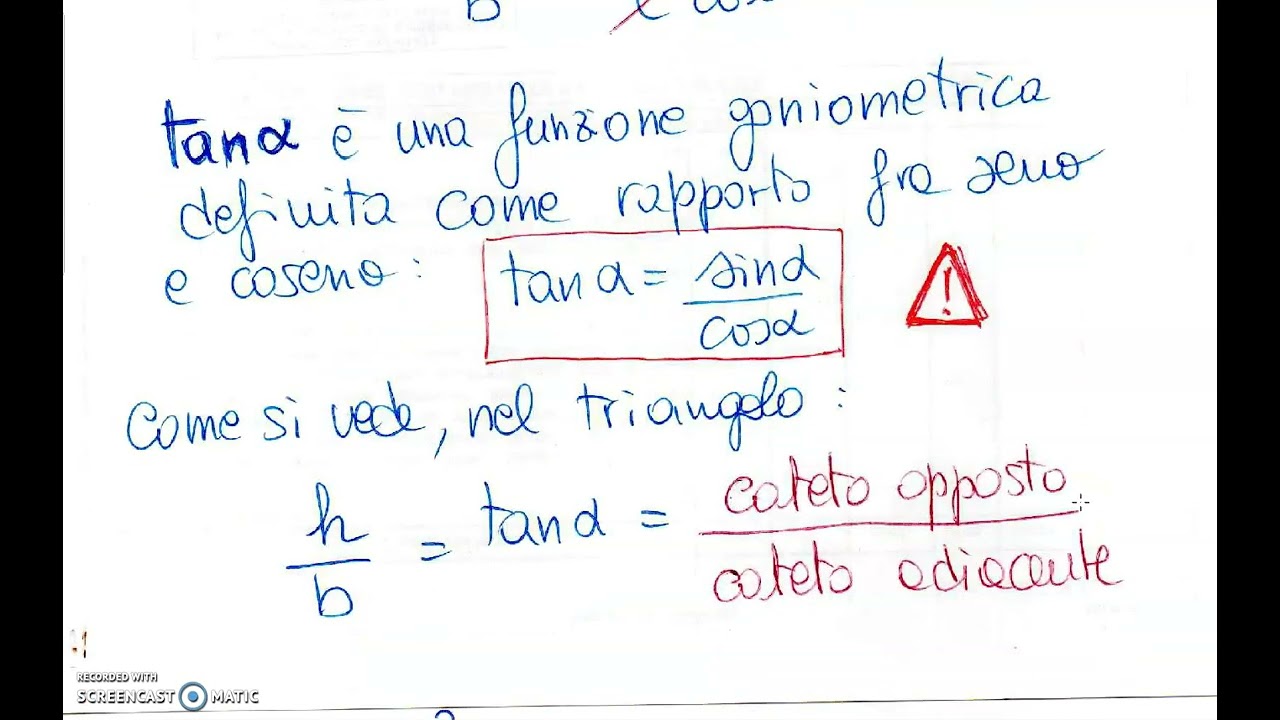 b
tanα è una funzione goniometrica
definita come rapporto fra seno
e coseno: tanα = sinα / cosα
!
Come si vede, nel triangolo:
h / b = tanα = cateto opposto / cateto adiacente
RECORDED WITH
SCREENCAST MATIC